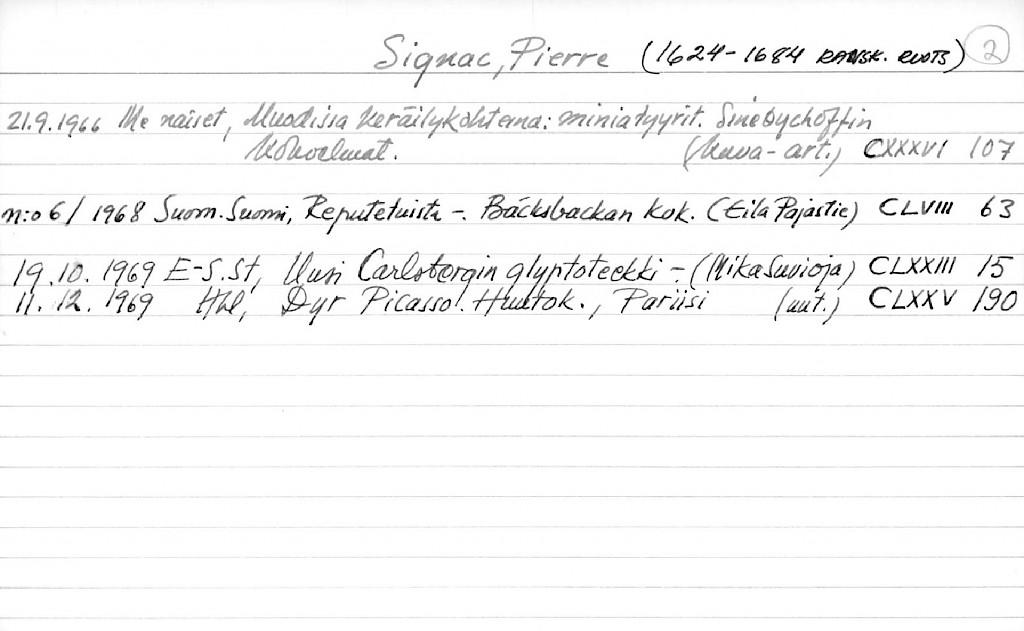 Signac, Pierre (1624-1684 RANSK. RUOTS) 2
21.9.1966 Me naiset, Muodissa keräilykohteena: miniatyyrit. Sinebychoffin
kokoelmat. (kuva-art.) CXXXVI 107
n:o 6/1968 Suom. Suomi, Reputetuista -. Bäcksbackan kok. (Eila Pajastie) CLVIII 63
19.10.1969 E-S.St, Uusi Carlsbergin glyptoteekki - (Mika Suvioja) CLXXIII 15
11.12.1969 Hbl, Dyr Picasso. Huutok., Pariisi (uut.) CLXXV 190